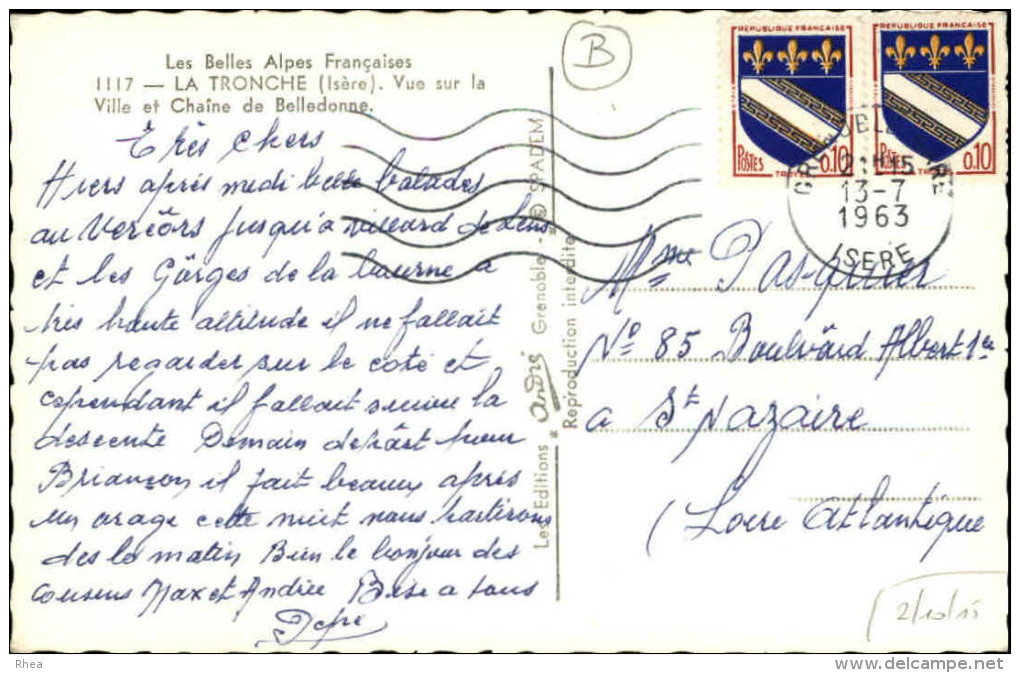 Les Belles Alpes Françaises
1117 — LA TRONCHE (Isère). Vue sur la
Ville et Chaîne de Belledonne.
Très chers
Hiers après midi belle balades
au Vercôrs jusqu'a villard de Lens
et les Gôrges de la bourne a
très haute altitude il ne fallait
pas regarder sur le coté et
cependant il fallait suivre la
descente Demain depârt pour
Briançon il fait beaux après
un orage cette nuit nous partirons
des le matin Bien le bonjour des
cousins Max et Andrée Bise a tous
Les Editions * André Grenoble - * © SPADEM
Reproduction interdite
B
REPUBLIQUE FRANÇAISE
POSTES 0,10
TROYES
REPUBLIQUE FRANÇAISE
POSTES 0,10
TROYES
21H15
13-7
1963
ISERE
Mme Pasquier
Nº 85 Boulvârd Albert 1er
a St Nazaire
(Loire Atlantique
2/10/15
Rhea
www.delcampe.net